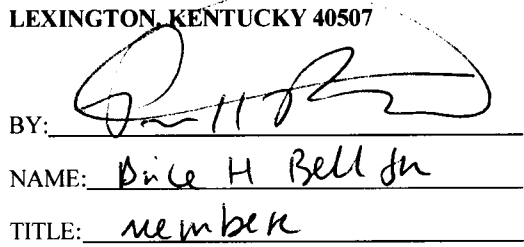 LEXINGTON, KENTUCKY 40507
BY:
NAME: H Bell Jr
TITLE: member